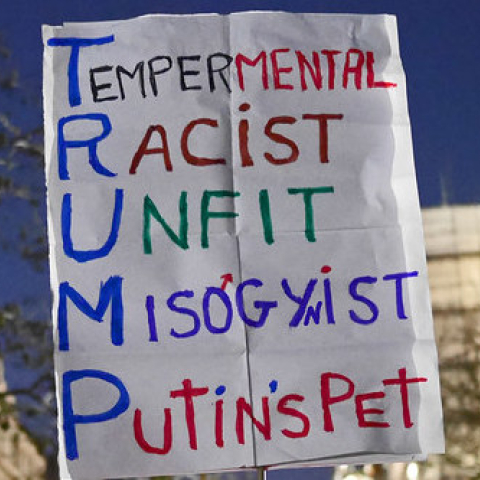 TEMPERMENTAL
RACIST
UNFIT
MISOGYNIST
PUTIN'S PET